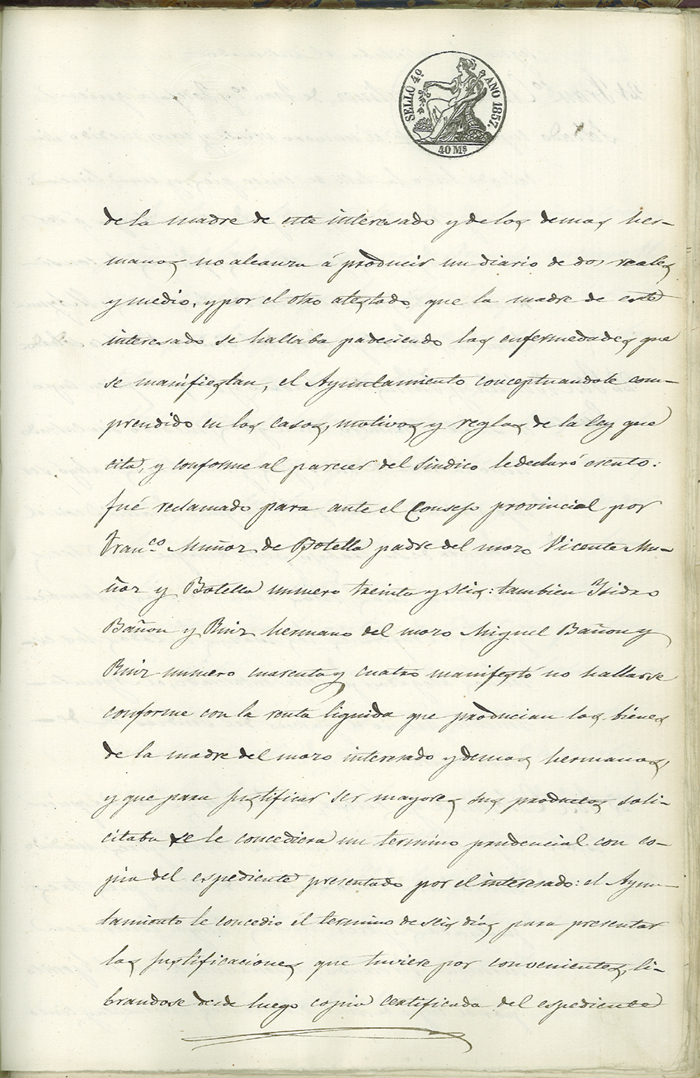 SELLO 4º AÑO 1857.
40 Ms
de la madre de este interesado y de los demas her-
manos no alcanza á producir un diario de dos reales
y medio, y por el otro atestado que la madre de este
interesado se hallaba padeciendo las enfermedades que
se manifiestan, el Ayuntamiento conceptuandole com-
prendido en los casos, motivos y reglas de la ley que
cita, y conforme al parecer del Sindico le declaró esento:
fué reclamado para ante el Consejo provincial por
Franco Muñoz de Botella padre del mozo Vicente Mu-
ñoz y Botella numero treinta y seis: tambien Isidro
Bañon y Ruiz hermano del mozo Miguel Bañon y
Ruiz numero cuarenta y cuatro manifestó no hallarse
conforme con la renta liquida que producian los bienes
de la madre del mozo interesado y demas hermanos,
y que para justificar ser mayores sus productos soli-
citaba se le concediera un termino prudencial con co-
pia del espediente presentado por el interesado: el Ayun-
tamiento le concedio el termino de seis dias para presentar
las justificaciones que tuviere por convenientes, li-
brandose desde luego copia certificada del espediente